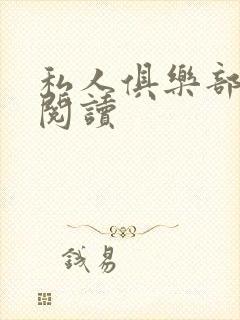 私人俱樂部
閱讀
錢易